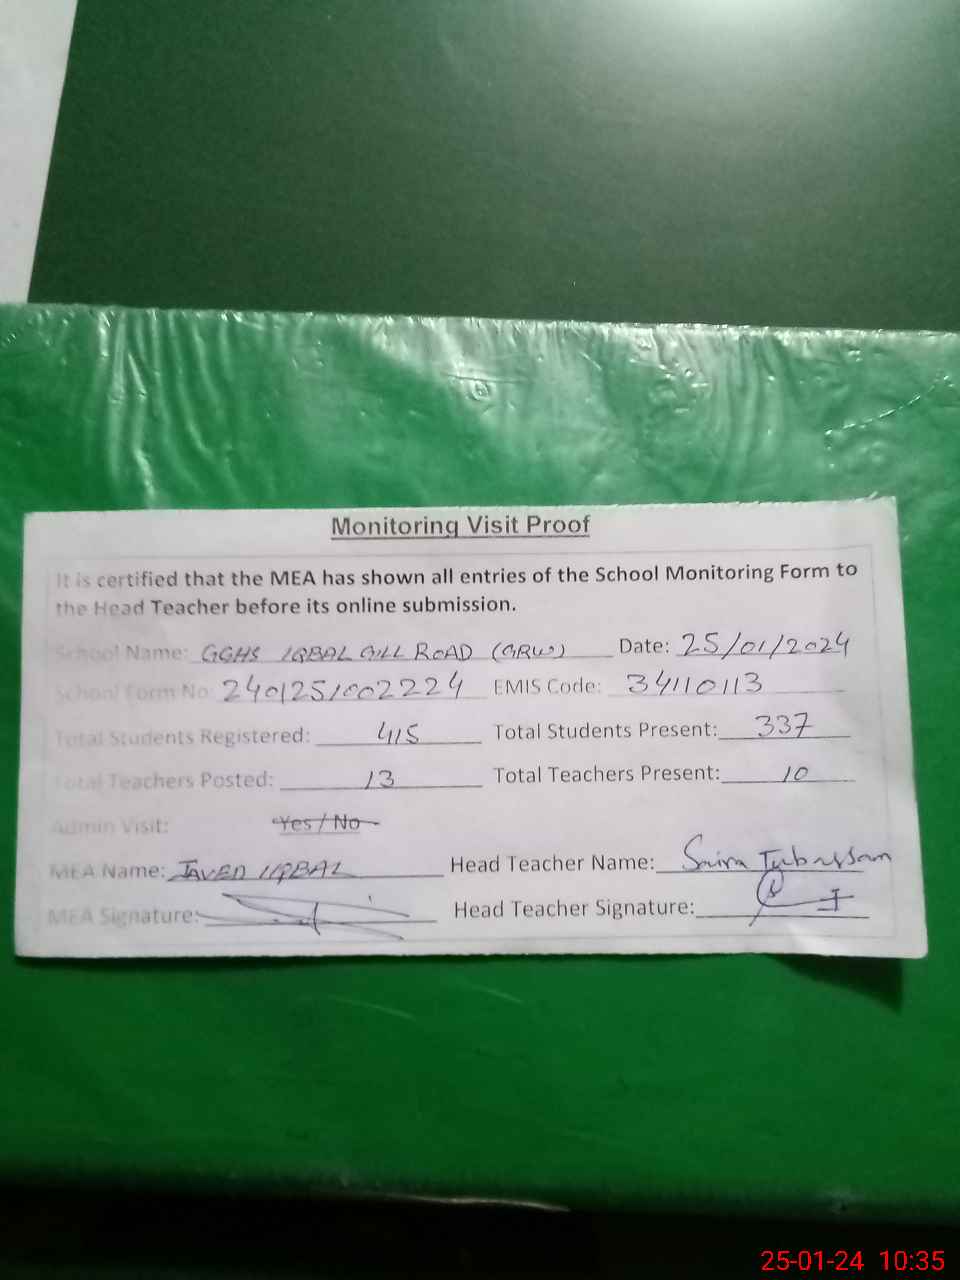 Monitoring Visit Proof
It is certified that the MEA has shown all entries of the School Monitoring Form to
the Head Teacher before its online submission.
School Name: GGHS IQBAL GILL ROAD (GRW) Date: 25/01/2024
School Form No: 2401251002224 EMIS Code: 34110113
Total Students Registered: 415 Total Students Present: 337
Total Teachers Posted: 13 Total Teachers Present: 10
Admin Visit: Yes / No
MEA Name: JAVED IQBAL Head Teacher Name: Saira Tubassam
MEA Signature: Head Teacher Signature:
25-01-24 10:35